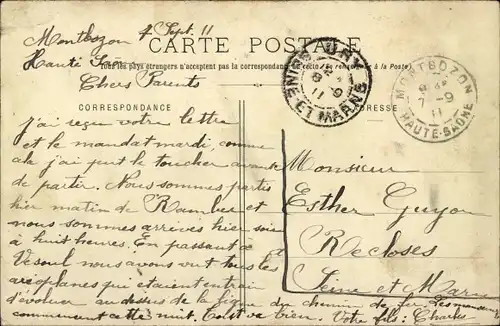 Montbozon 7 Sept. 11
Haute Saône
CARTE POSTALE
Tous les pays étrangers n'acceptent pas la correspondance au recto (Se renseigner à la Poste)
Chers Parents
CORRESPONDANCE
J'ai reçu votre lettre
et le mandat mardi, comme
cela j'ai peut le toucher avant
de partir. Nous sommes partis
hier matin de Rambert et
nous sommes arrivés hier soir
à huit heures. En passant à
Vesoul nous avons vut tous les
aréoplanes que étaient entrain
d'évoluer au dessus de la ligne du chemin de fer. Les manœuvres
commencent cette nuit. Tout va bien. Votre fils: Charles
ADRESSE
Monsieur
Esther Guyon
Recloses
Seine et Marne
URY
8 -9
11
SEINE ET MARNE
MONTBOZON
7 -9
11
HAUTE-SAONE